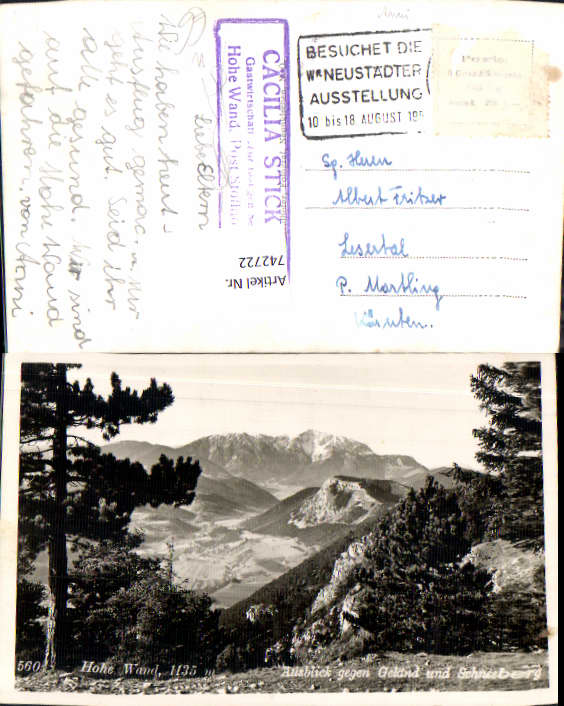 Liebe Eltern
Wir haben heut
Ausflug gemac.
geht es gut. Seid Ihr
alle gesund. Wir sind
auf die Hohe Wand
gefahren. von Anni
CÄCILIA STICK
Gastwirtschaft
Hohe Wand, Post Stollhof
Artikel Nr.
742722
BESUCHET DIE
WR NEUSTÄDTER
AUSSTELLUNG
10 bis 18 AUGUST 195
Sp. Herrn
Albert Fritzer
Lesertal
P. Martling
Kärnten.
560
Hohe Wand, 1135 m
Ausblick gegen Geländ und Schneeberg